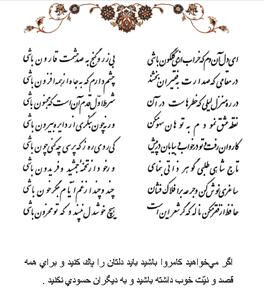 ای دل آن دم که خراب از می گلگون باشی
بی زر و گنج به صد حشمت قارون باشی
در مقامی که صدارت به فقیران بخشند
چشم دارم که به جاه از همه افزون باشی
در ره منزل لیلی که خطرهاست در آن
شرط اول قدم آن است که مجنون باشی
نقطه عشق نمودم به تو هان سهو مکن
ور نه چون بنگری از دایره بیرون باشی
کاروان رفت و تو در خواب و بیابان در پیش
کی روی ره ز که پرسی چه کنی چون باشی
تاج شاهی طلبی گوهر ذاتی بنمای
ور خود از تخمه جمشید و فریدون باشی
ساغری نوش کن و جرعه بر افلاک فشان
چند و چند از غم ایام جگرخون باشی
حافظ از فقر مکن ناله که گر شعر این است
هیچ خوشدل نپسندد که تو محزون باشی
اگر می‌خواهید کامروا باشید باید دلتان را پاك کنید و براي همه
قصد و نیّت خوب داشته باشید و به دیگران حسودي نکنید .